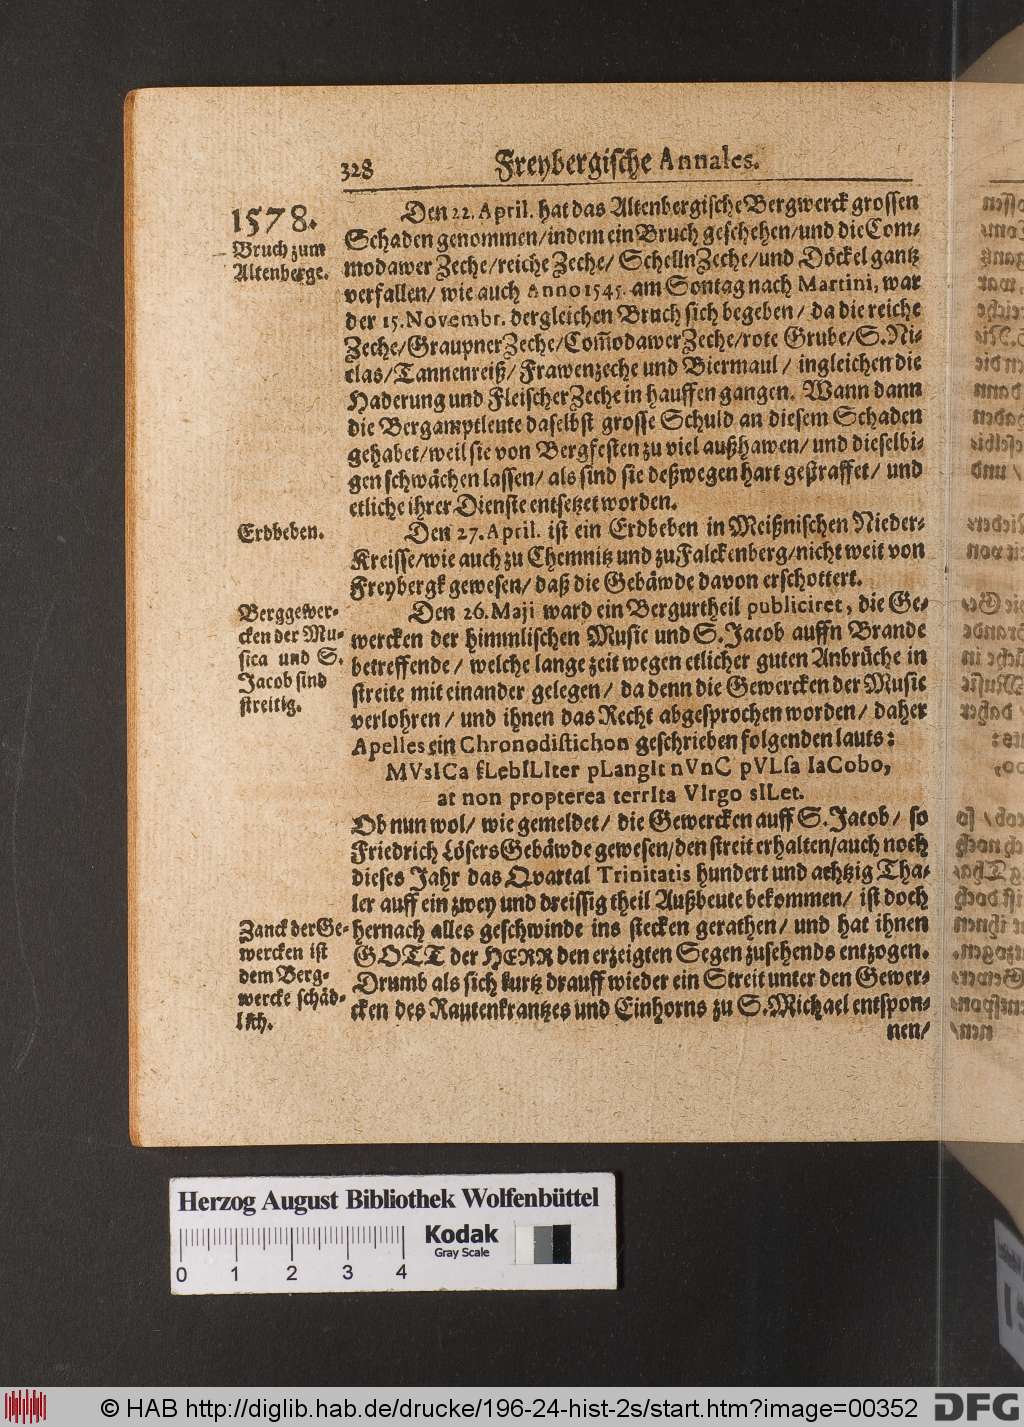 328 Freybergische Annales.
1578.
Bruch zum
Altenberge.
Den 22. April. hat das Altenbergische Bergwerck grossen
Schaden genommen/indem ein Bruch geschehen/und die Com-
modawer Zeche/reiche Zeche/ SchellnZeche/und Döckel gantz
verfallen/ wie auch Anno 1545. am Sontag nach Martini, war
der 15. Novembr. dergleichen Bruch sich begeben/ da die reiche
Zeche/GraupnerZeche/Com̃odawerZeche/rote Grube/S. Ni-
clas/Tannenreiß/ Frawenzeche und Biermaul / ingleichen die
Haderung und FleischerZeche in hauffen gangen. Wann dann
die Bergamptleute daselbst grosse Schuld an diesem Schaden
gehabet/weil sie von Bergfesten zu viel außhawen/ und dieselbi-
gen schwächen lassen/ als sind sie deßwegen hart gestraffet/ und
etliche ihrer Dienste entsetzet worden.
Erdbeben.
Den 27. April. ist ein Erdbeben in Meißnischen Nieder-
Kreisse/wie auch zu Chemnitz und zu Falckenberg/nicht weit von
Freybergk gewesen/ daß die Gebäwde davon erschottert.
Berggewer-
cken der Mu-
sica und S.
Jacob sind
streitig.
Den 26. Maji ward ein Bergurtheil publiciret, die Ge-
wercken der himmlischen Music und S. Jacob auffn Brande
betreffende/ welche lange zeit wegen etlicher guten Anbrüche in
streite mit einander gelegen/ da denn die Gewercken der Music
verlohren/ und ihnen das Recht abgesprochen worden/ daher
Apelles ein Chronodistichon geschrieben folgenden lauts:
MVsICa fLebILIter pLangIt nVnC pVLsa IaCobo,
at non propterea terrIta VIrgo sILet.
Ob nun wol/ wie gemeldet/ die Gewercken auff S. Jacob/ so
Friedrich Lösers Gebäwde gewesen/den streit erhalten/auch noch
dieses Jahr das Qvartal Trinitatis hundert und achtzig Tha-
ler auff ein zwey und dreissig theil Außbeute bekommen/ ist doch
Zanck der Ge-
wercken ist
dem Berg-
wercke schäd-
lich.
hernach alles geschwinde ins stecken gerathen/ und hat ihnen
GOTT der HERR den erzeigten Segen zusehends entzogen.
Drumb als sich kurtz drauff wieder ein Streit unter den Gewer-
cken des Rautenkrantzes und Einhorns zu S. Michael entspon-
nen/
Herzog August Bibliothek Wolfenbüttel
Kodak
Gray Scale
0 1 2 3 4
© HAB http://diglib.hab.de/drucke/196-24-hist-2s/start.htm?image=00352
DFG